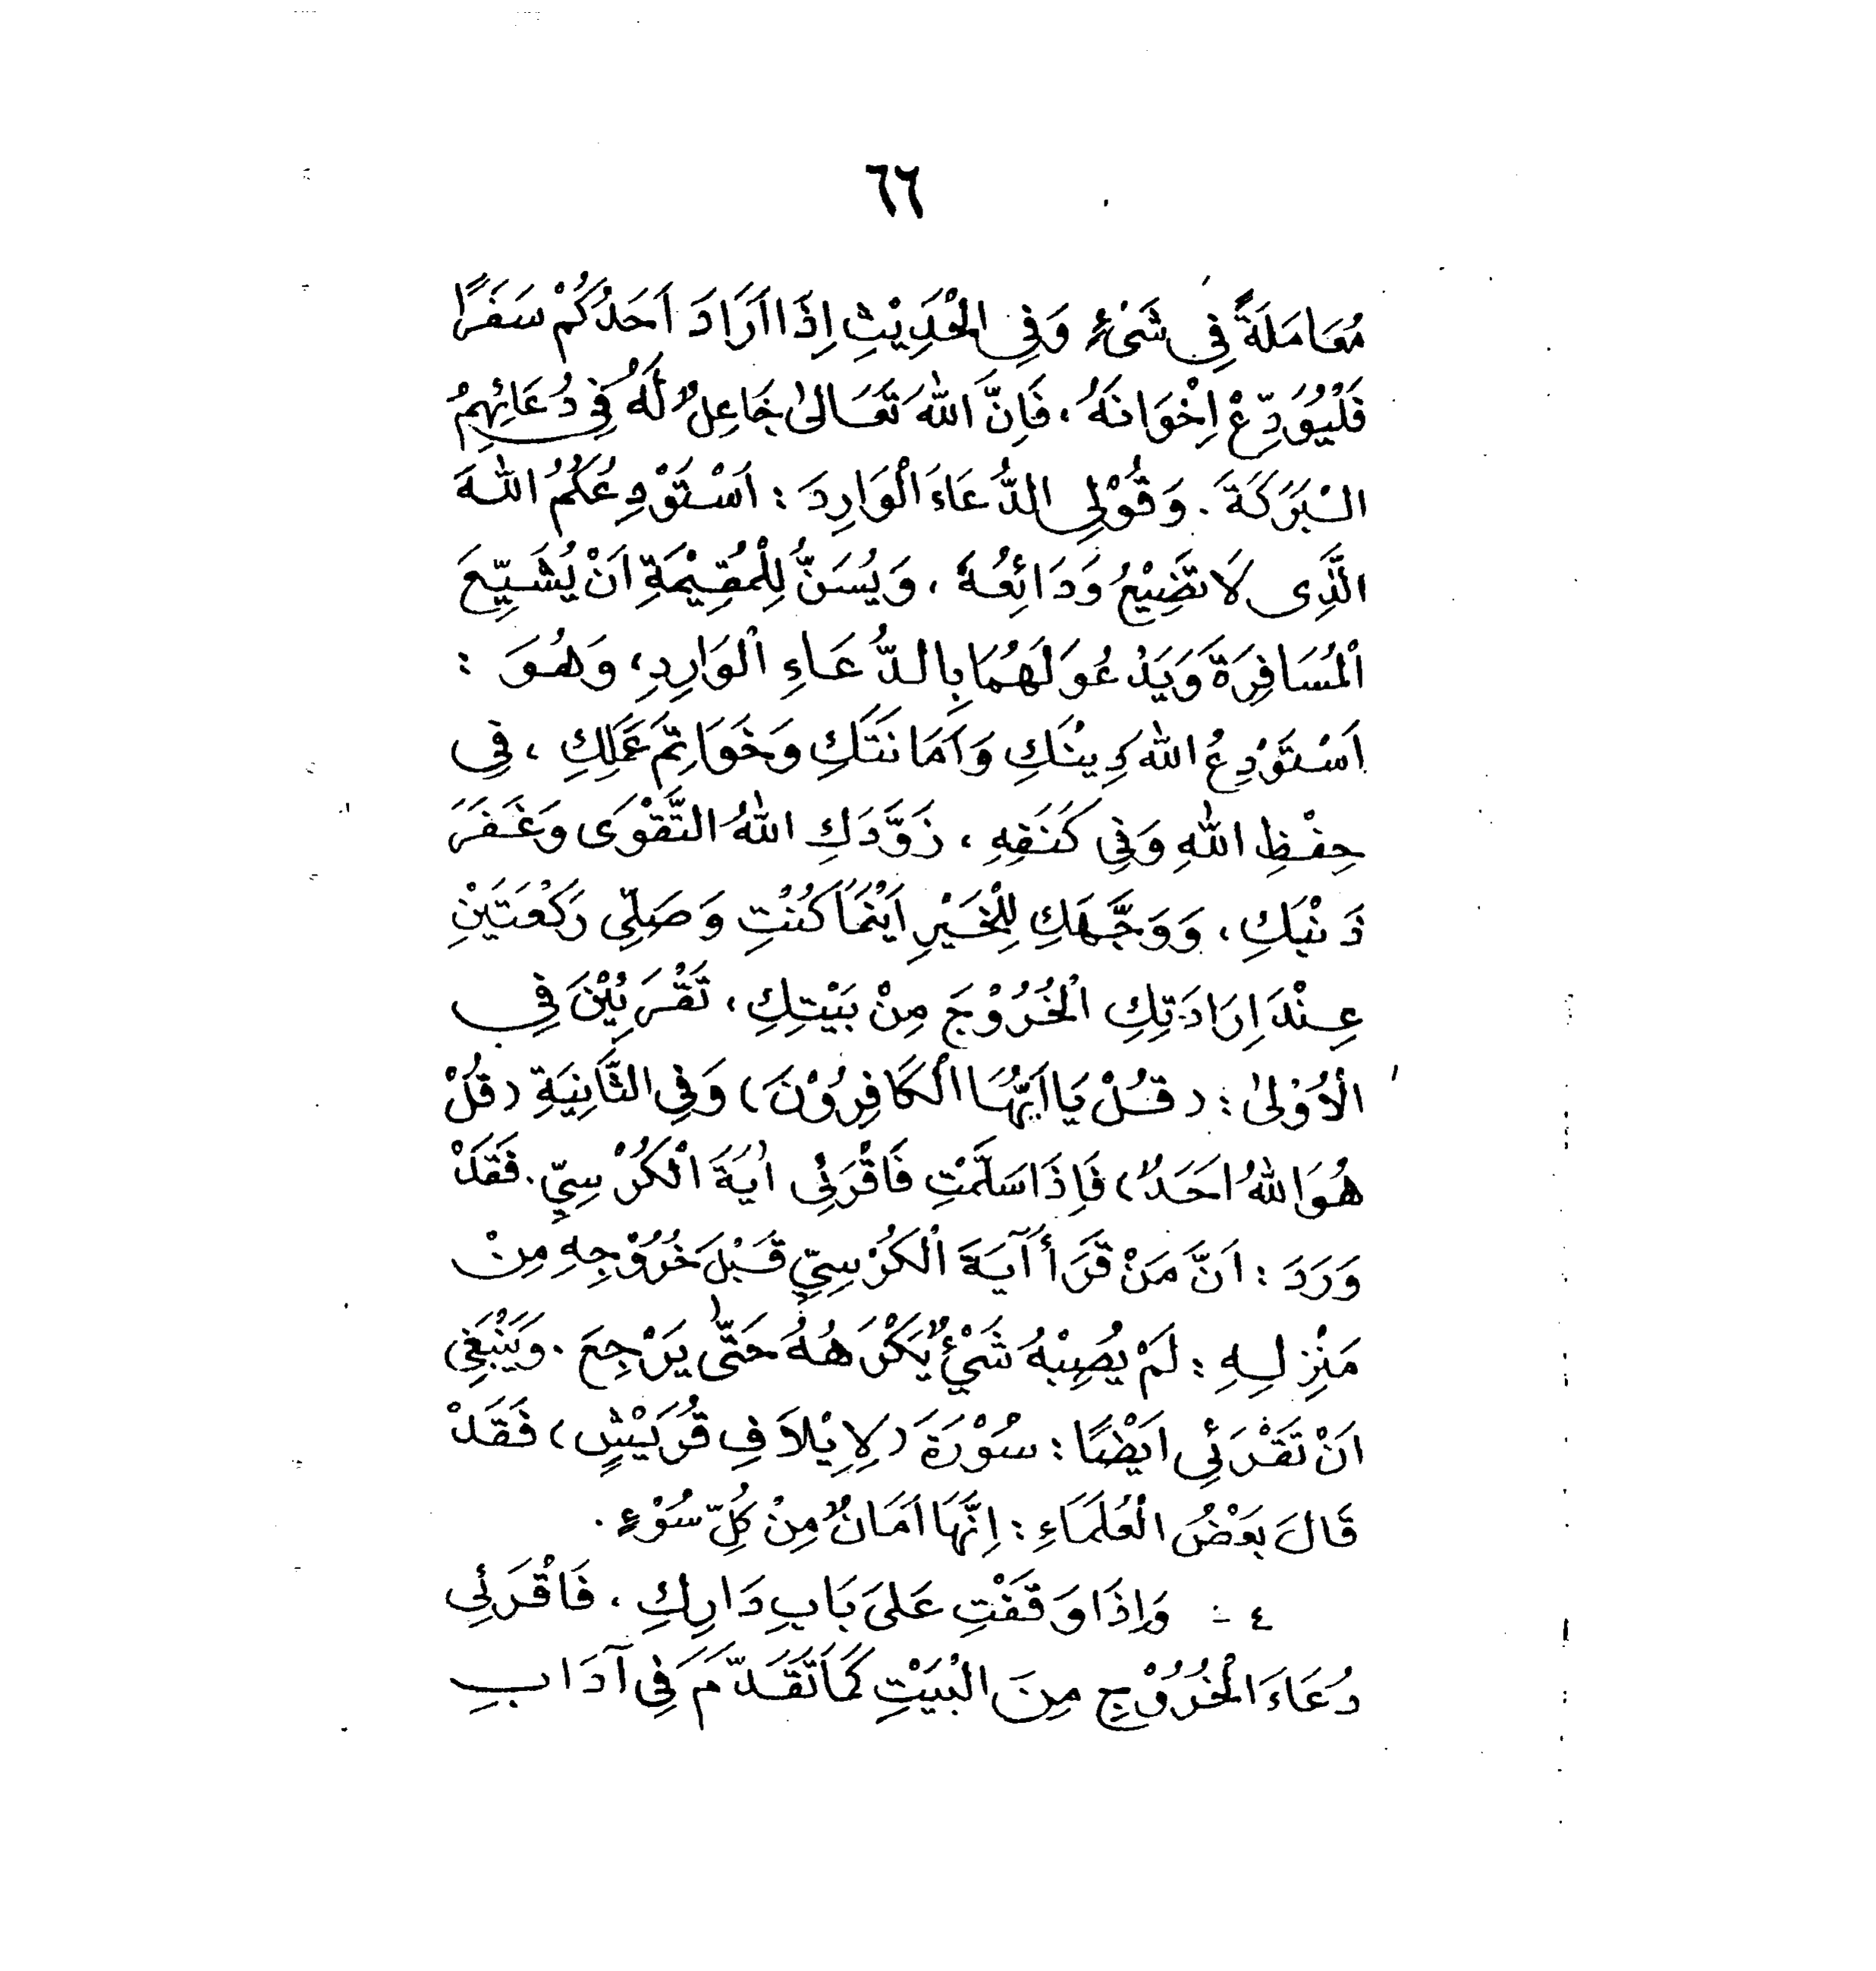 ٦٦
مُعَامَلَةً فِى شَىْءٍ وَفِى الْحَدِيْثِ اِذَا اَرَادَ اَحَدُكُمْ سَفَرًا
فَلْيُوَدِّعْ اِخْوَانَهُ ، فَاِنَّ اللّٰهَ تَعَالىٰ جَاعِلٌ لَهُ فِى دُعَائِهِمُ
الْبَرَكَةَ . وَقُوْلِى الدُّعَاءَ الْوَارِدَ : اَسْتَوْدِعُكُمُ اللّٰهَ
الَّذِى لَا تَضِيْعُ وَدَائِعُهُ ، وَيُسَنُّ لِلْمُقِيْمَةِ اَنْ يُشَيِّعَ
الْمُسَافِرَةَ وَيَدْعُوَ لَهُمَا بِالدُّعَاءِ الْوَارِدِ ، وَهُوَ :
اَسْتَوْدِعُ اللّٰهَ دِيْنَكِ وَاَمَانَتَكِ وَخَوَاتِمَ عَمَلِكِ ، فِى
حِفْظِ اللّٰهِ وَفِى كَنَفِهِ ، زَوَّدَكِ اللّٰهُ التَّقْوَى وَغَفَرَ
ذَنْبَكِ ، وَوَجَّهَكِ لِلْخَيْرِ اَيْنَمَا كُنْتِ وَصَلِّى رَكْعَتَيْنِ
عِنْدَ اِرَادَتِكِ الْخُرُوْجَ مِنْ بَيْتِكِ ، تَقْرَئِيْنَ فِى
الْاُوْلىٰ : (قُلْ يَا اَيُّهَا الْكَافِرُوْنَ) وَفِى الثَّانِيَةِ (قُلْ
هُوَ اللّٰهُ اَحَدٌ) فَاِذَا سَلَّمْتِ فَاقْرَئِى اٰيَةَ الْكُرْسِيِّ . فَقَدْ
وَرَدَ : اَنَّ مَنْ قَرَأَ آيَةَ الْكُرْسِيِّ قَبْلَ خُرُوْجِهِ مِنْ
مَنْزِلِهِ : لَمْ يُصِبْهُ شَيْءٌ يَكْرَهُهُ حَتّٰى يَرْجِعَ . وَيَنْبَغِى
اَنْ تَقْرَئِى اَيْضًا : سُوْرَةَ (لِاِيْلَافِ قُرَيْشٍ) فَقَدْ
قَالَ بَعْضُ الْعُلَمَاءِ : اِنَّهَا اَمَانٌ مِنْ كُلِّ سُوْءٍ .
٤ - وَاِذَا وَقَفْتِ عَلىَ بَابِ دَارِكِ ، فَاقْرَئِى
دُعَاءَ الْخُرُوْجِ مِنَ الْبَيْتِ كَمَا تَقَدَّمَ فِى آدَابِ